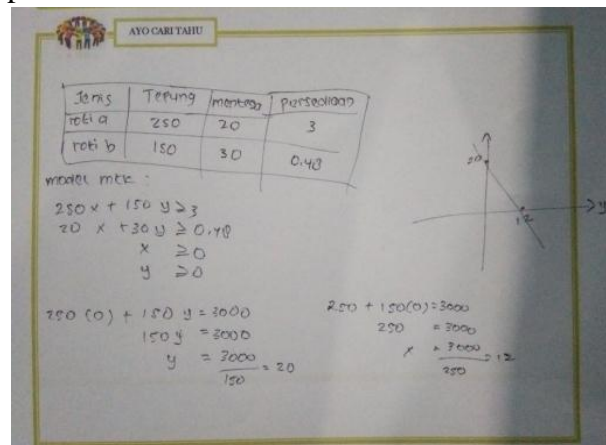 AYO CARI TAHU
Jenis Tepung mentega Persediaan
roti a 250 20 3
roti b 150 30 0.48
model mtk :
250 x + 150 y ≥ 3
20 x + 30 y ≥ 0.48
x ≥ 0
y ≥ 0
250 (0) + 150 y = 3000
150 y = 3000
y = 3000 = 20
150
250 + 150 (0) = 3000
250 = 3000
x = 3000 = 12
250
20
12
y